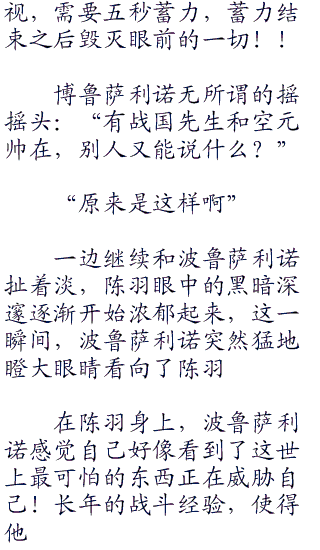 视，需要五秒蓄力，蓄力结
束之后毁灭眼前的一切！！
博鲁萨利诺无所谓的摇
摇头：“有战国先生和空元
帅在，别人又能说什么？”
“原来是这样啊”
一边继续和波鲁萨利诺
扯着淡，陈羽眼中的黑暗深
邃逐渐开始浓郁起来，这一
瞬间，波鲁萨利诺突然猛地
瞪大眼睛看向了陈羽
在陈羽身上，波鲁萨利
诺感觉自己好像看到了这世
上最可怕的东西正在威胁自
己！长年的战斗经验，使得
他